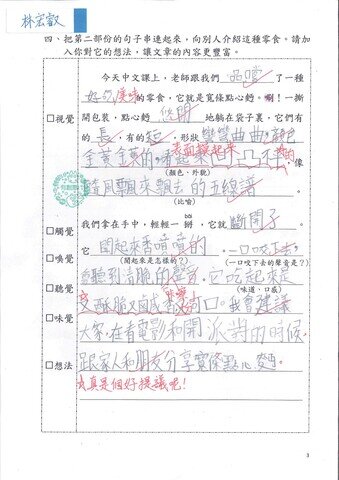 林宏叡
四、把第二部份的句子串連起來,向別人介紹這種零食。請加
入你對它的想法,讓文章的內容更豐富。
今天中文課上,老師跟我們品嚐了一種
好吃美味的零食,它就是寬條點心麵。唰!一撕
□視覺 開包裝,點心麵 地躺在袋子裏,它們有
的長,有的短,形狀彎彎曲曲,顏色
金黃金黃的,表面摸起來凹凸不 像
(顏色,外貌)
隨風飄來飄去的五線譜。
(比喻)
□觸覺 我們拿在手中,輕輕一掰,它就斷開了
□嗅覺 它聞起來香噴噴的,一口咬下去,
(聞起來是怎樣的?) (一口咬下去的聲音是?)
□聽覺 會聽到清脆的聲音,它吃起來是
(味道、口感)
□味覺 又酥脆又鹹 口。我會建議
大家,在看電影和開派對的時候,
□想法 跟家人和朋友分享寬條點心麵。
真是個好提議呢!
3